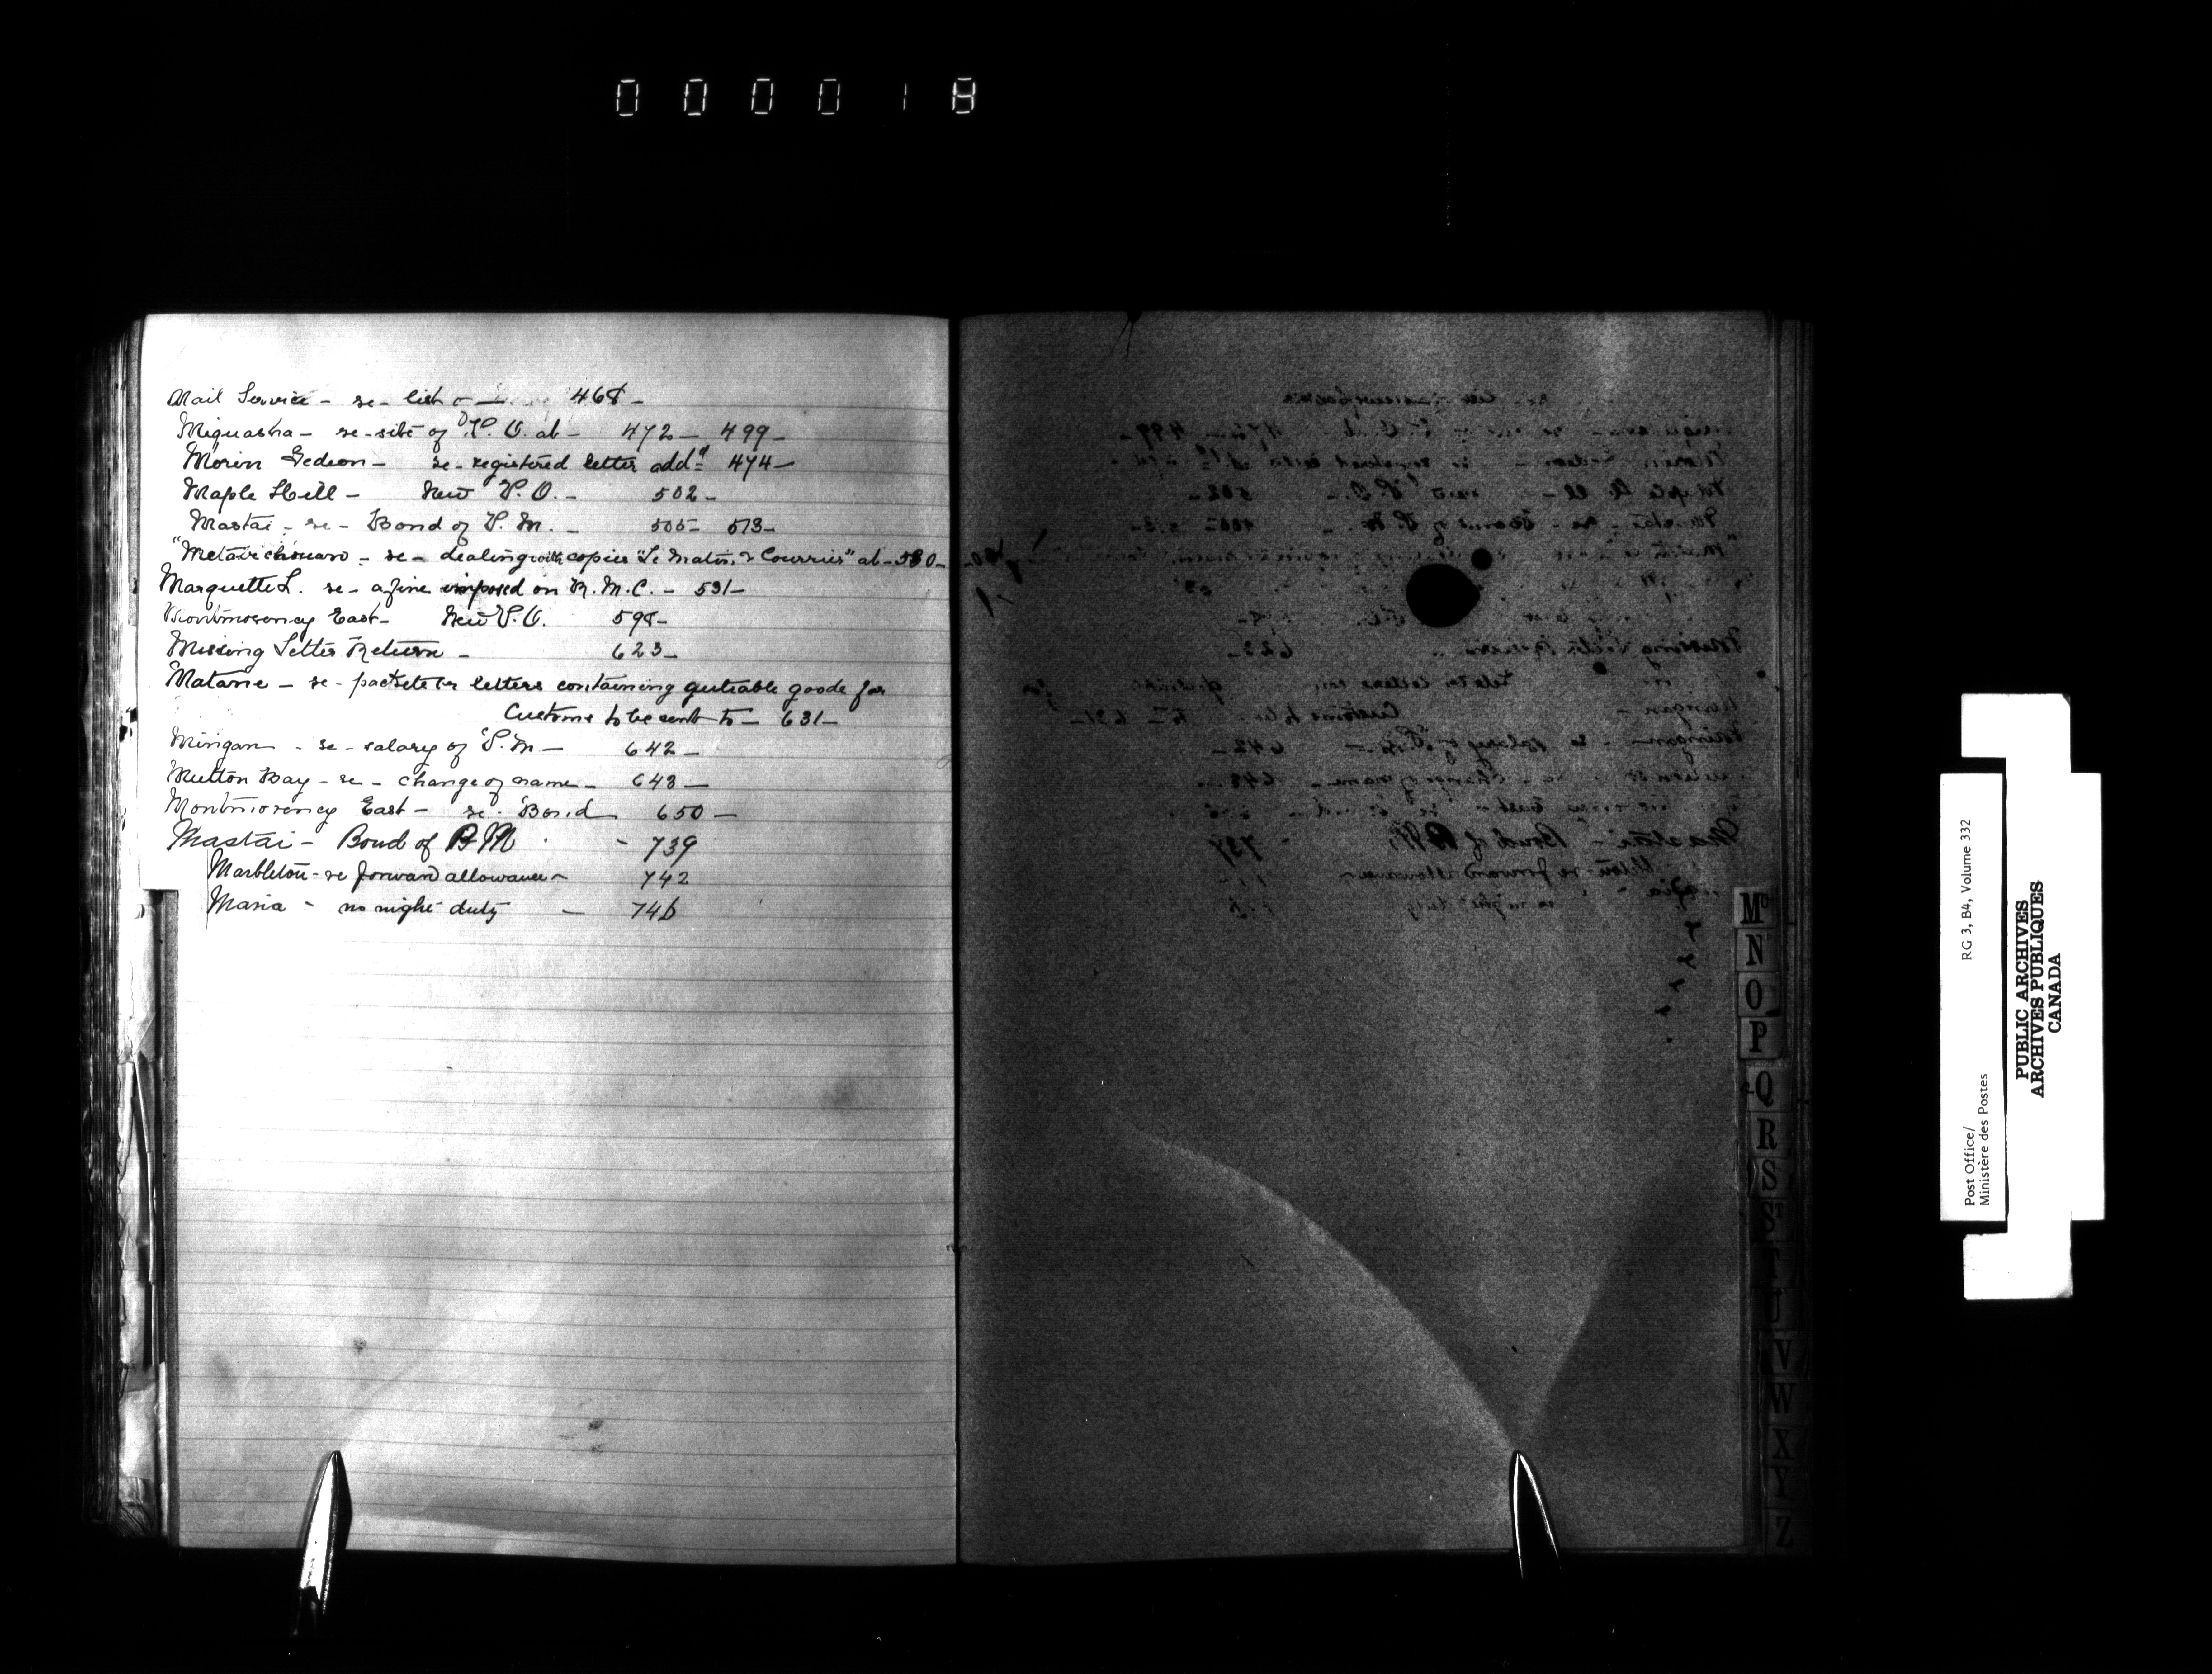 000018
Mail Service - re - list o 468 -
Miguasha - re - site of P. O. at - 472 - 499 -
Morin Gedeon - re - registered letter addd 474 -
Maple Hill - New P. O. - 502 -
Mastai - re - Bond of P. M. - 505 - 513 -
"Metabetchouan - re - dealing with copies "Le Matin, & Courrier" at - 530 -
Marquette L. re - a fine imposed on R. M. C. - 531 -
Montmorency East - New P. O. 598 -
Missing Letter Return - 623 -
Matane - re - packets or letters containing dutiable goods for
Customs to be sent to - 631 -
Mingan - re - salary of P. M - 642 -
Mutton Bay - re - change of name - 643 -
Montmorency East - re. Bond 650 -
Mastai - Bond of P M - 739
Marbleton - re forward allowance - 742
Maria - no night duty - 746
Mc
N
O
P
Q
R
S
ST
T
U
V
W
X
Y
Z
Post Office/ RG 3, B4, Volume 332
Ministère des Postes
PUBLIC ARCHIVES
ARCHIVES PUBLIQUES
CANADA